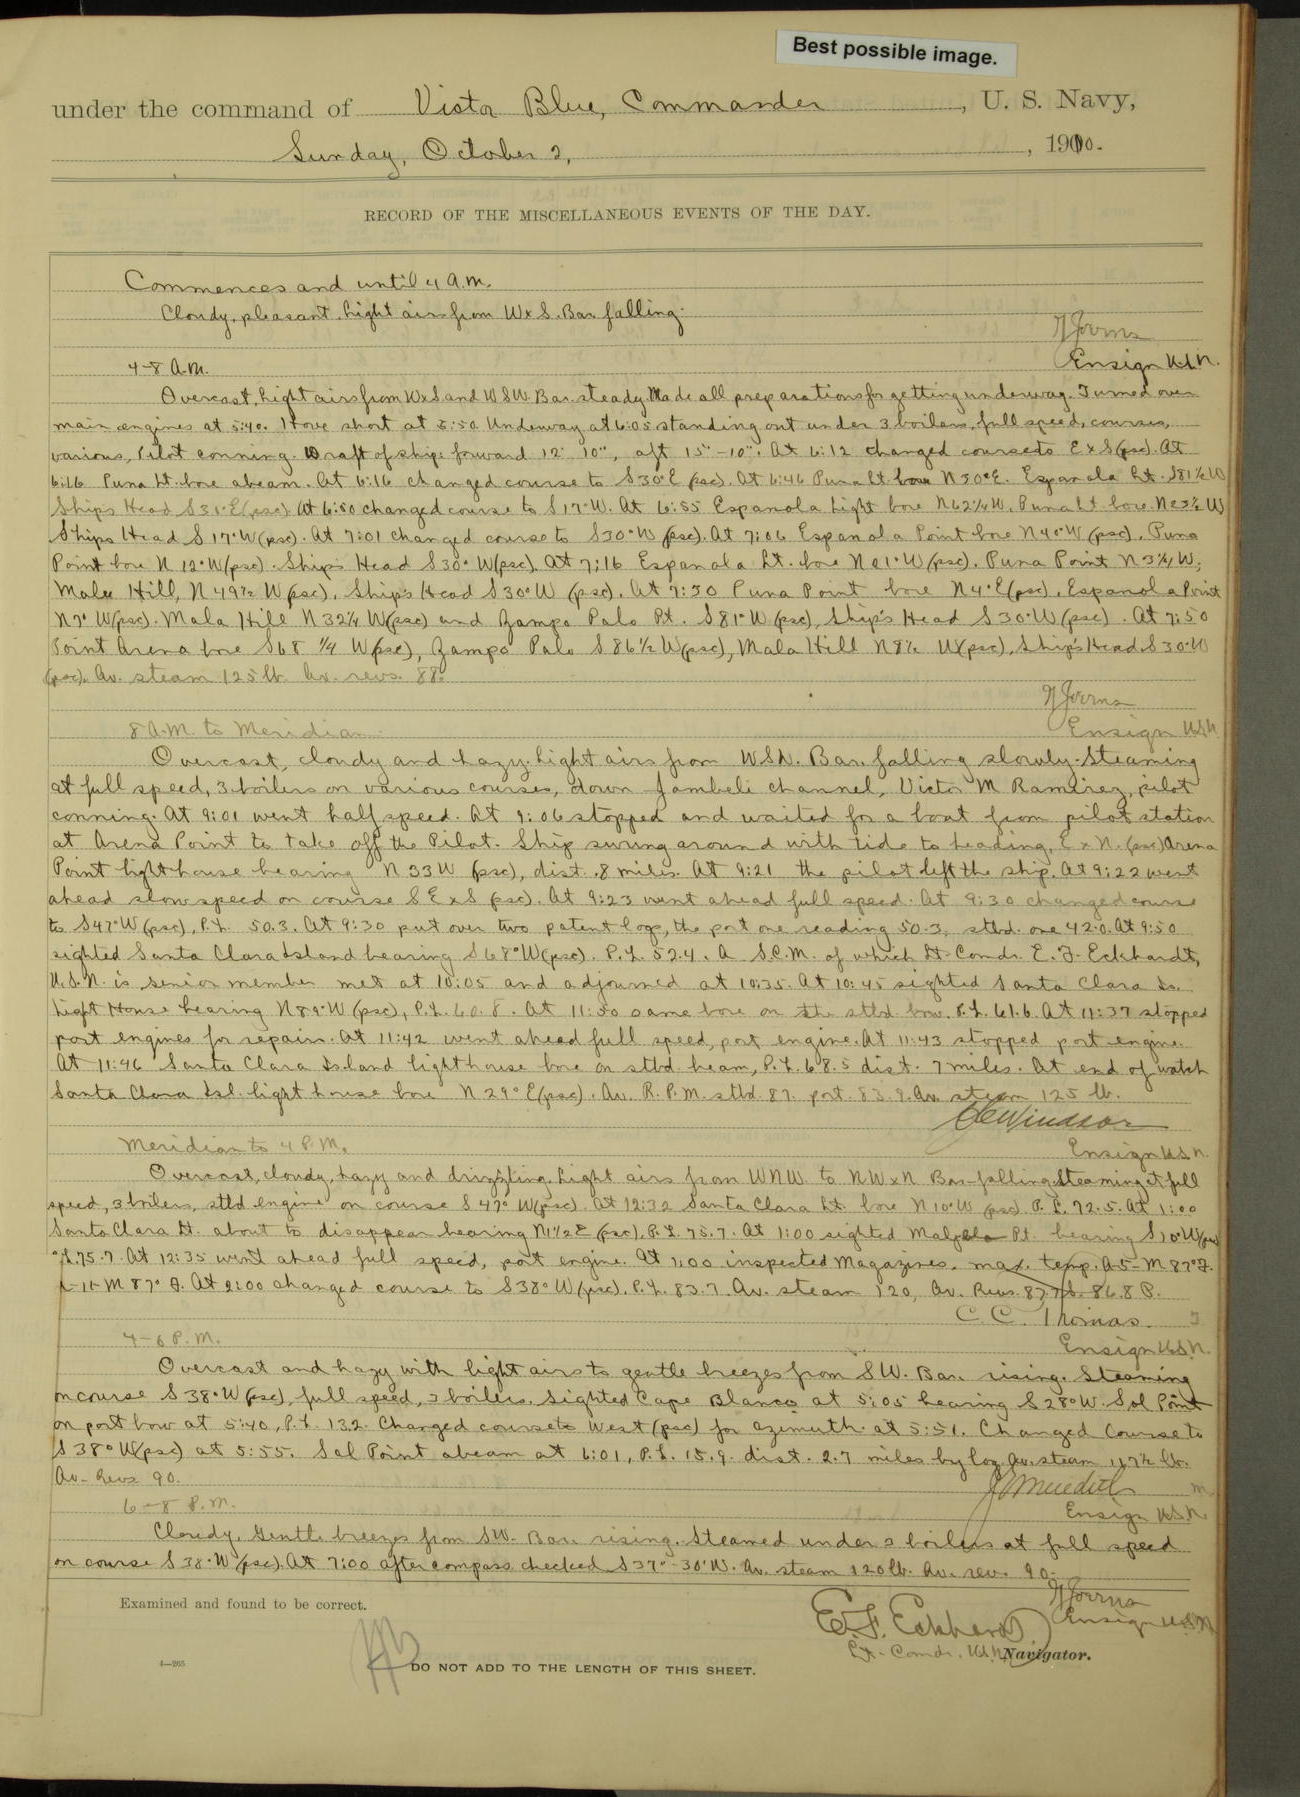 Best possible image.
under the command of Victor Blue, Commander, U. S. Navy,
Sunday, October 2, 1910.
RECORD OF THE MISCELLANEOUS EVENTS OF THE DAY.
Commences and until 4 A.M.
Cloudy, pleasant. Light airs from WxS. Bar. falling.
Ensign U.S.N.
4-8 A.M.
Overcast, light airs from WxS and WSW. Bar. steady. Made all preparations for getting underway. Turned over
main engines at 5:40. Hove short at 5:50. Underway at 6:05 standing out under 3 boilers, full speed, courses,
various, Pilot conning. Draft of ship: forward 12' 10", aft 15'-10". At 6:12 changed course to ExS (psc). At
6:16 Puna Lt. bore abeam. At 6:16 changed course to S30°E (psc). At 6:46 Puna Lt. bore N50°E. Espanola Lt. S81½W
Ships Head S31°E (psc). At 6:50 changed course to S17°W. At 6:55 Espanola Light bore N62¼W. Puna Lt. bore N23½W
Ships Head S17°W (psc). At 7:01 changed course to S30°W (psc). At 7:06 Espanola Point bore N40°W (psc), Puna
Point bore N12°W (psc). Ship's Head S30°W (psc). At 7:16 Espanola Lt. bore N21°W (psc). Puna Point N3¼W,
Mala Hill, N49½W (psc), Ship's Head S30°W (psc). At 7:30 Puna Point bore N4°E (psc), Espanola Point
N7°W (psc). Mala Hill N32¼W (psc) and Zampo Palo Pt. S81°W (psc), Ship's Head S30°W (psc). At 7:50
Point Arena bore S68¼W (psc), Zampo Palo S86½W (psc), Mala Hill N8½W (psc), Ship's Head S30°W
(psc). Av. steam 125 lb. Av. revs. 88.
Ensign U.S.N.
8 A.M. to Meridian.
Overcast, cloudy and hazy. Light airs from WSW. Bar. falling slowly. Steaming
at full speed, 3 boilers on various courses, down Jambeli channel, Victor M Ramirez, pilot
conning. At 9:01 went half speed. At 9:06 stopped and waited for a boat from pilot station
at Arena Point to take off the Pilot. Ship swung around with tide to heading, ExN. (psc) Arena
Point lighthouse bearing N33W (psc), dist. .8 miles. At 9:21 the pilot left the ship. At 9:22 went
ahead slow speed on course SExS (psc). At 9:23 went ahead full speed. At 9:30 changed course
to S47°W (psc), P.L. 50.3. At 9:30 put over two patent logs, the port one reading 50.3, stbd. one 42.0. At 9:50
sighted Santa Clara Island bearing S68°W (psc). P.L. 52.4. A S.C.M. of which Lt. Comdr. E. F. Eckhardt,
U.S.N. is senior member met at 10:05 and adjourned at 10:35. At 10:45 sighted Santa Clara Is.
Light House bearing N89°W (psc), P.L. 60.8. At 11:50 same bore on the stbd bow. P.L. 61.6. At 11:37 stopped
port engines for repairs. At 11:42 went ahead full speed, port engine. At 11:43 stopped port engine.
At 11:46 Santa Clara Island lighthouse bore on stbd beam, P.L. 68.5 dist. 7 miles. At end of watch
Santa Clara Isl. light house bore N29°E (psc). Av. R.P.M. stbd. 87. port. 83.9. Av. steam 125 lb.
Windsor
Ensign U.S.N.
Meridian to 4 P.M.
Overcast, cloudy, hazy and drizzling. Light airs from WNW to NWxN. Bar. falling. Steaming at full
speed, 3 boilers, stbd engine on course S47°W (psc). At 12:32 Santa Clara Lt. bore N10°W (psc) P.L. 72.5. At 1:00
Santa Clara Lt. about to disappear bearing N1½E (psc), P.L. 75.7. At 1:00 sighted Malpelo Pt. bearing S10°W (psc)
P.L. 75.7. At 12:35 went ahead full speed, port engine. At 1:00 inspected Magazines. max. temp. A-5-M 87°F.
87°F. At 2:00 changed course to S38°W (psc). P.L. 83.7. Av. steam 120, Av. Revs. 87.7 S. 86.8 P.
C. C. Thomas.
Ensign U.S.N.
4-6 P.M.
Overcast and hazy with light airs to gentle breezes from SW. Bar. rising. Steaming
on course S38°W (psc), full speed, 3 boilers. Sighted Cape Blanco at 5:05 bearing S28°W. Sal Point
on port bow at 5:40, P.L. 13.2. Changed course to West (psc) for azimuth at 5:51. Changed Course to
S38°W (psc) at 5:55. Sal Point abeam at 6:01, P.L. 15.9. dist. 2.7 miles by log. Av. steam 117½ lb.
Av. Revs 90.
J Meredith
Ensign U.S.N.
6-8 P.M.
Cloudy. Gentle breezes from SW. Bar. rising. Steamed under 3 boilers at full speed
on course S38°W (psc). At 7:00 after compass checked S37°-30'W. Av. steam 120 lb. Av. rev. 90.
Ensign U.S.N.
Examined and found to be correct.
E. F. Eckhardt
Lt. Comdr. U.S.N. Navigator.
4—265
DO NOT ADD TO THE LENGTH OF THIS SHEET.